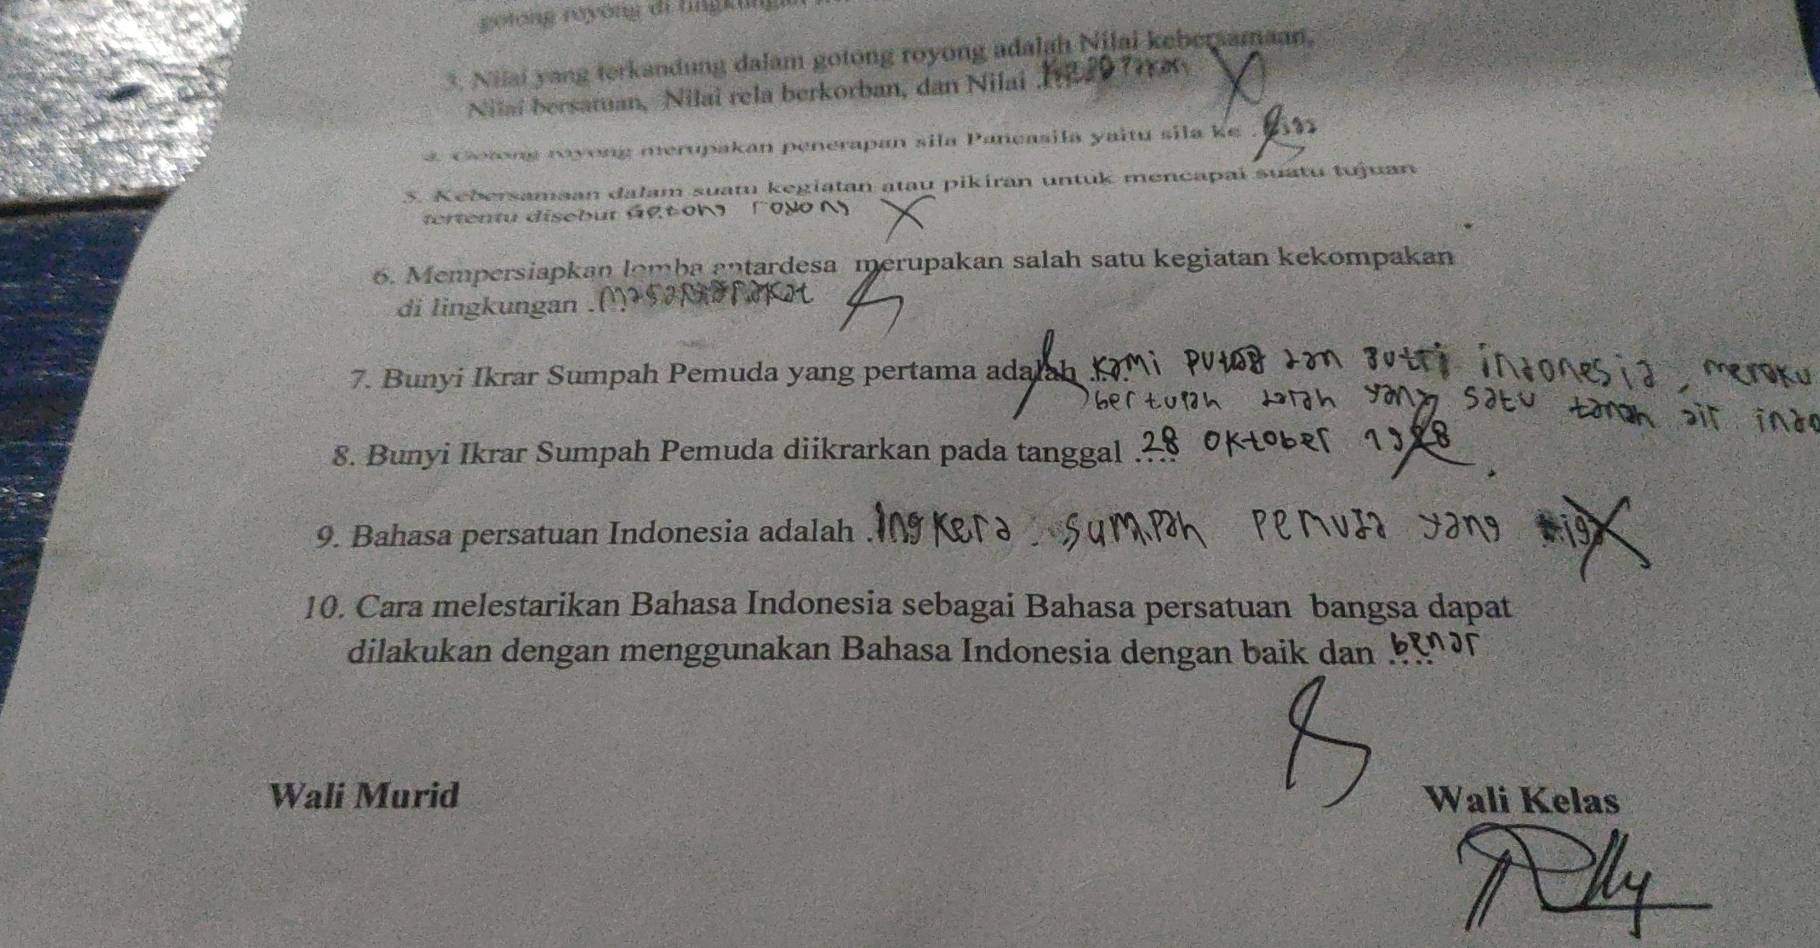 gotong royong di lingkungan
3. Nilai yang terkandung dalam gotong royong adalah Nilai kebersamaan,
Nilai bersatuan, Nilai rela berkorban, dan Nilai
4. Gotong royong merupakan penerapan sila Pancasila yaitu sila ke
5. Kebersamaan dalam suatu kegiatan atau pikiran untuk mencapai suatu tujuan
tertentu disebut Gotong royong
6. Mempersiapkan lomba antardesa merupakan salah satu kegiatan kekompakan
di lingkungan
7. Bunyi Ikrar Sumpah Pemuda yang pertama adalah kami putra dan putri indonesia, meraku
bertupah darah yang satu tanah air indo
8. Bunyi Ikrar Sumpah Pemuda diikrarkan pada tanggal .28 Oktober 1928
9. Bahasa persatuan Indonesia adalah .Ingkera sumpah pemuda yang
10. Cara melestarikan Bahasa Indonesia sebagai Bahasa persatuan bangsa dapat
dilakukan dengan menggunakan Bahasa Indonesia dengan baik dan benar
Wali Murid
Wali Kelas